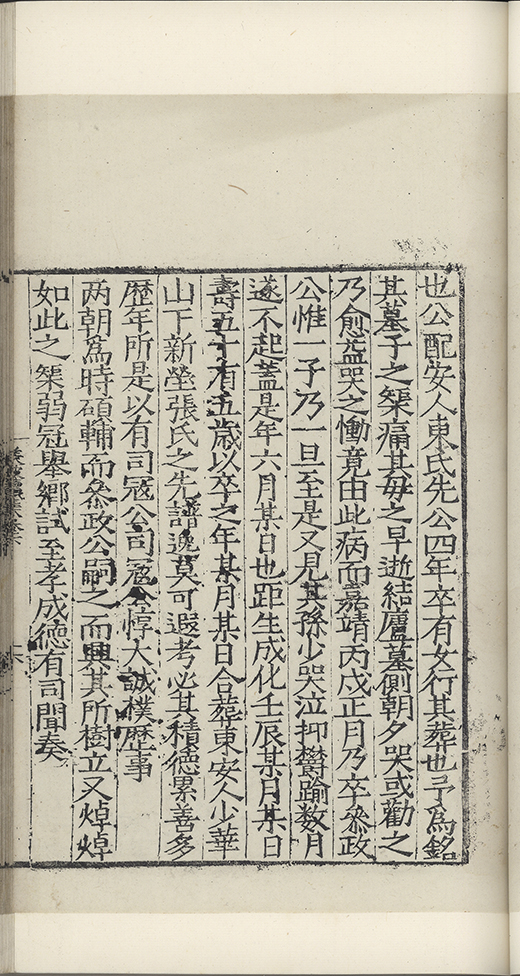 也公配安人東氏先公四年卒有女行其葬也予為銘
其墓子之榘痛其母之早逝結廬墓側朝夕哭或勸之
乃愈益哭之慟竟由此病而嘉靖丙戌正月乃卒叅政
公惟一子乃一旦至是又見其孫少哭泣抑欝踰数月
遂不起蓋是年六月某日也距生成化壬辰某月某日
壽五十有五歳以卒之年某月某日合葬東安人少華
山下新塋張氏之先譜逸莫可遐考必其積德累善多
歴年所是以有司寇公司寇公惇大誠樸歴事
两朝為時碩輔而叅政公嗣之而興其所樹立又焯焯
如此之榘弱冠舉鄉試至孝成德有司聞奏